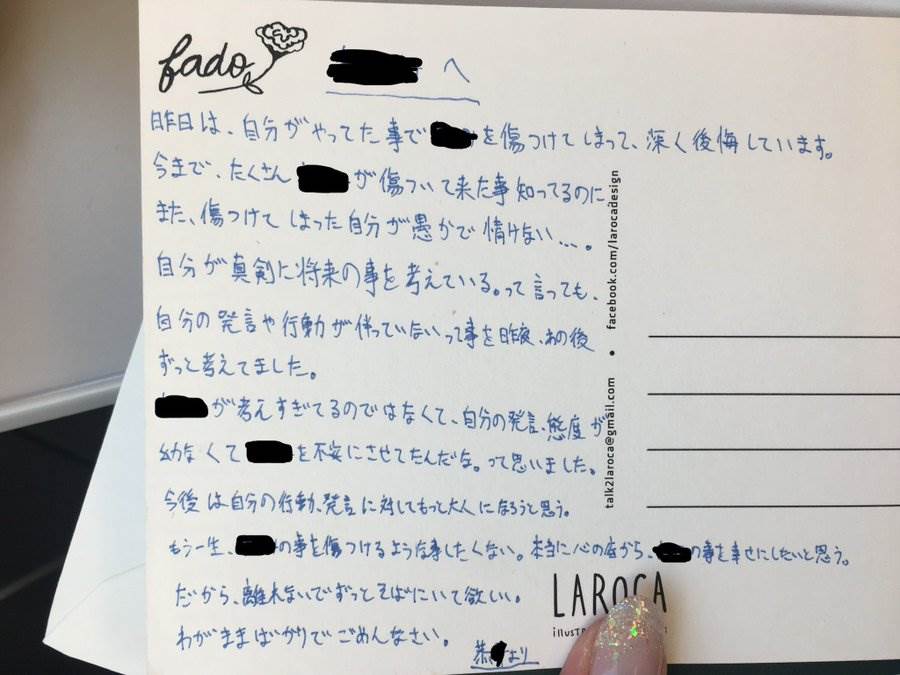 fado
へ
昨日は、自分がやってた事で を傷つけてしまって、深く後悔しています。
今まで、たくさん が傷ついて来た事知ってるのに
また、傷つけてしまった自分が愚かで情けない…。
自分が真剣に将来の事を考えている。って言っても、
自分の発言や行動が伴っていないって事を昨夜、あの後
ずっと考えてました。
が考えすぎてるのではなくて、自分の発言、態度が
幼なくて を不安にさせてたんだな。って思いました。
今後は自分の行動、発言に対してもっと大人になろうと思う。
もう一生、 の事を傷つけるような事したくない。本当に心の底から、 の事を幸せにしたいと思う。
だから、離れないでずっとそばにいて欲しい。
わがままばかりでごめんなさい。
恭 より
talk2laroca@gmail.com • facebook.com/larocadesign
LAROCA